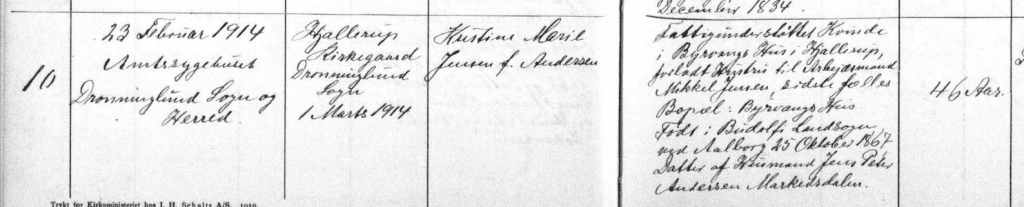 December 1834.
10
23 Februar 1914
Amtssygehuset
Dronninglund Sogn og
Herred.
Hjallerup
Kirkegaard
Dronninglund
Sogn
1 Marts 1914
Marie
Jensen f. Andersen
Fattigunderstøttet Kvinde
i Byrvangs Hus i Hjallerup,
forladt Hustru til Arbejdsmand
Mikkel Jensen, sidste fælles
Bopæl: Byrvangs Hus
Født i Budolfi Landsogn
ved Aalborg 25 Oktober 1867
Datter af Husmand Jens Peter
Andersen Markedsdalen.
46 Aar.
Trykt for Kirkeministeriet hos J. H. Schultz A/S. 1910.